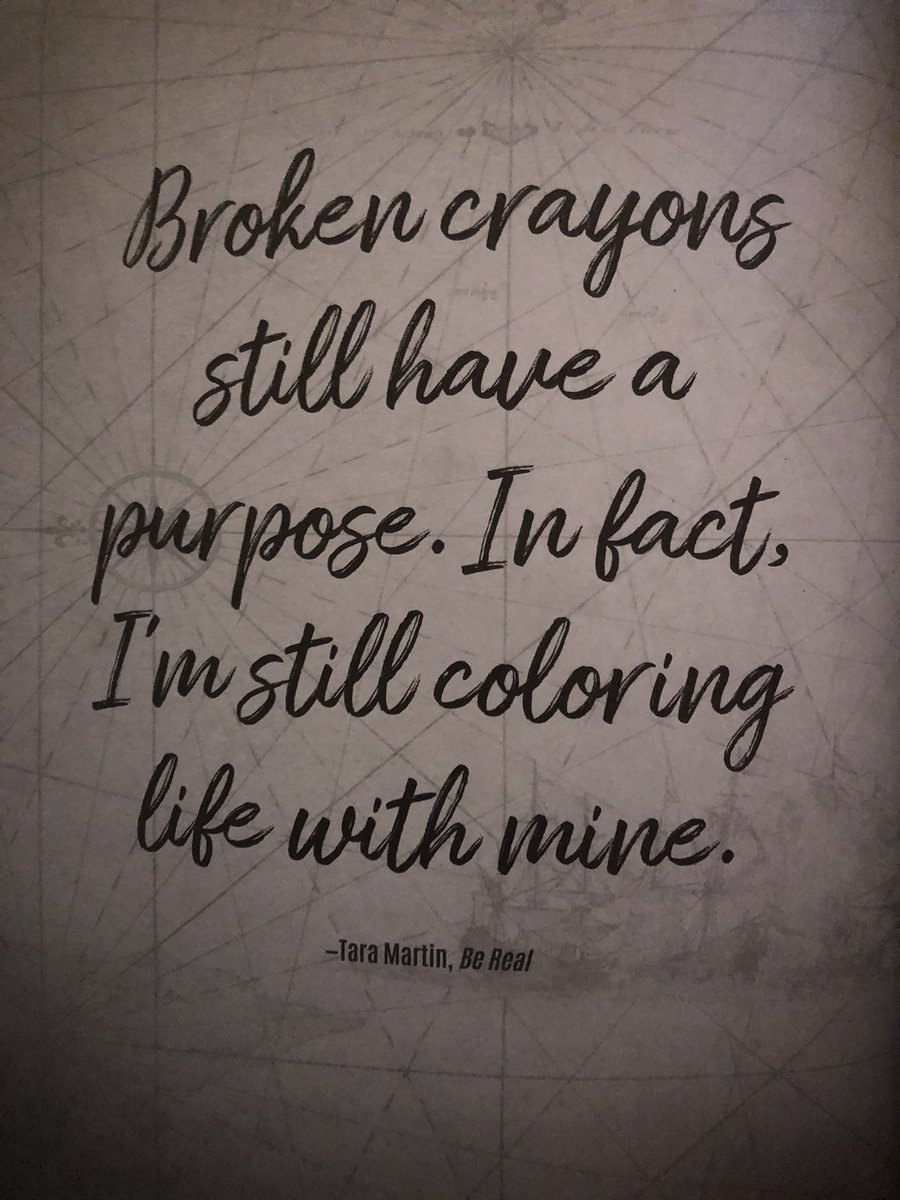 Broken crayons
still have a
purpose. In fact,
I'm still coloring
life with mine.
–Tara Martin, Be Real